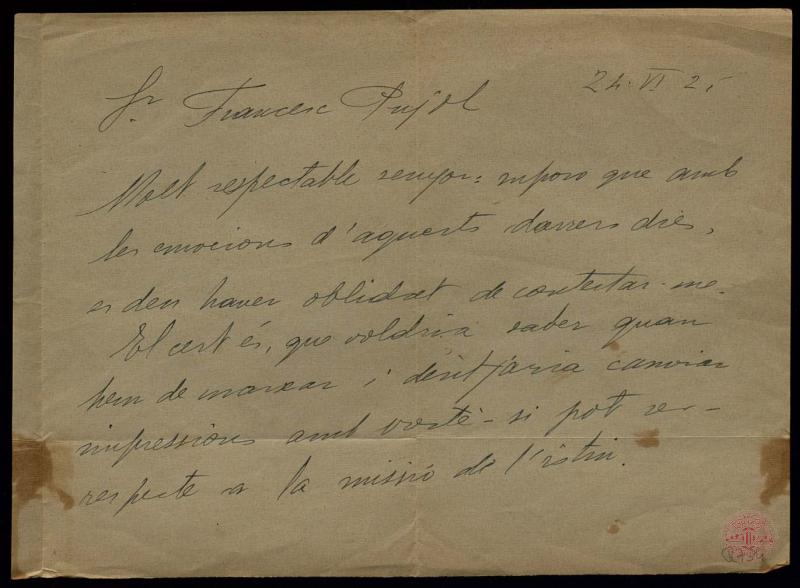 24. VI 25
Sr. Francesc Pujol
Molt respectable senyor: suposo que amb
les emocions d'aquests darrers dies,
es deu haver oblidat de contestar-me.
El cert és, que voldria saber quan
hem de marxar i desitjaria canviar
impressions amb vostè - si pot ser -
respecte a la missió de l'istiu.